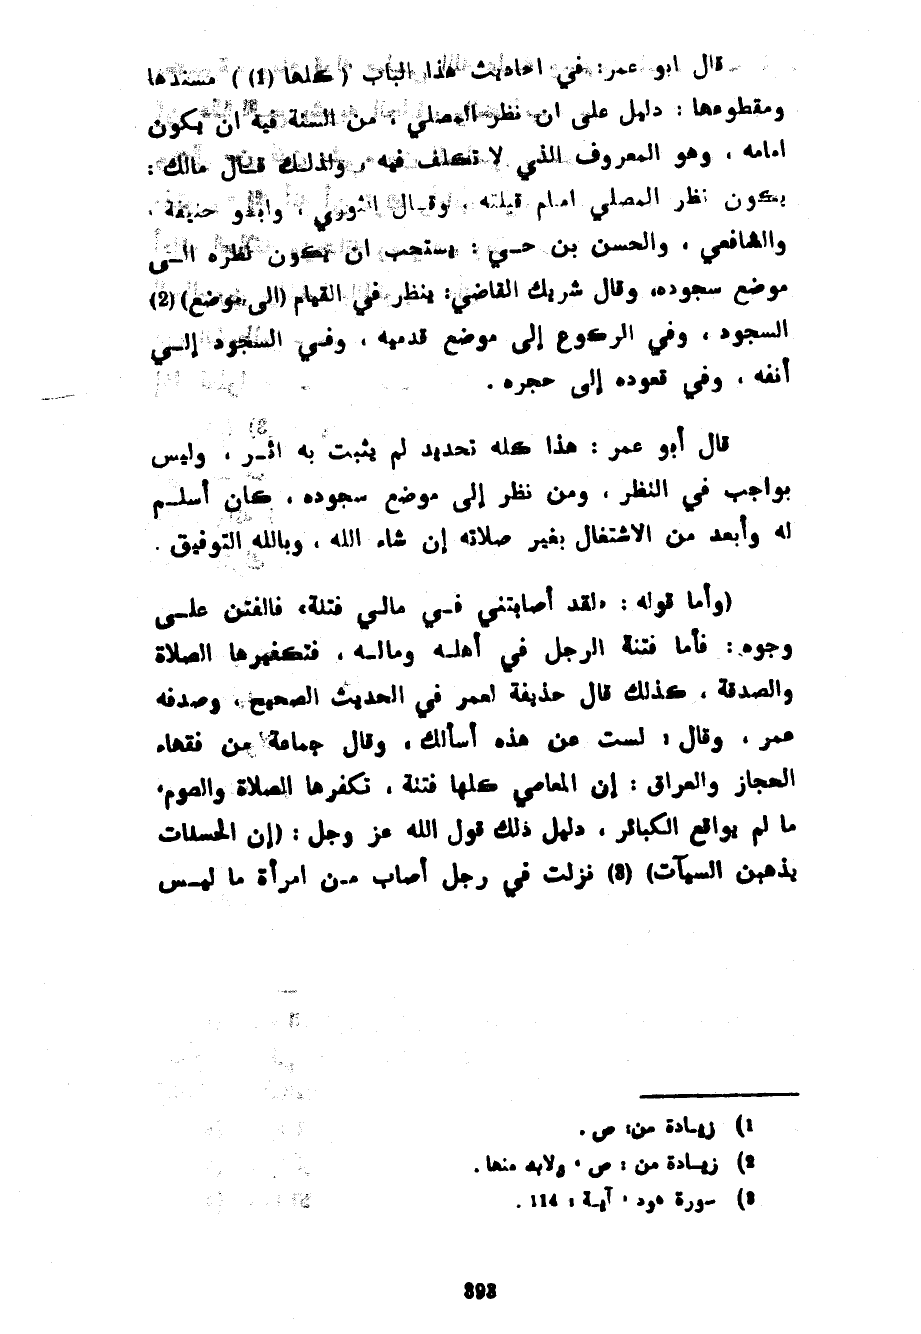 قال ابو عمر: في احاديث هذا الباب (كلها (1) ) مسندها
ومقطوعها : دليل على ان نظر المصلي ، من السنة فيه ان يكون
امامه ، وهو المعروف الذي لا تكلف فيه ، ولذلك قال مالك :
يكون نظر المصلي امام قبلته ، وقال الثوري ، وابو حنيفة ،
والشافعي ، والحسن بن حي : يستحب ان يكون نظره الى
موضع سجوده، وقال شريك القاضي: ينظر في القيام (الى موضع) (2)
السجود ، وفي الركوع إلى موضع قدميه ، وفي السجود إلى
أنفه ، وفي قعوده إلى حجره .
قال أبو عمر : هذا كله تحديد لم يثبت به اثر ، وليس
بواجب في النظر ، ومن نظر إلى موضع سجوده ، كان أسلم
له وأبعد من الاشتغال بغير صلاته إن شاء الله ، وبالله التوفيق .
(وأما قوله : «لقد أصابتني في مالي فتنة» فالفتن على
وجوه : فأما فتنة الرجل في أهله وماله ، فتكفيرها الصلاة
والصدقة ، كذلك قال حذيفة لعمر في الحديث الصحيح ، وصدقه
عمر ، وقال : لست عن هذه أسألك ، وقال جماعة من فقهاء
الحجاز والعراق : إن المعاصي كلها فتنة ، تكفرها الصلاة والصوم،
ما لم يواقع الكبائر ، دليل ذلك قول الله عز وجل : (إن الحسنات
يذهبن السيآت) (3) نزلت في رجل أصاب من امرأة ما ليس
1) زيادة من: ص .
2) زيادة من : ص ، ولابد منها .
3) سورة هود ، آية : 114 .
393